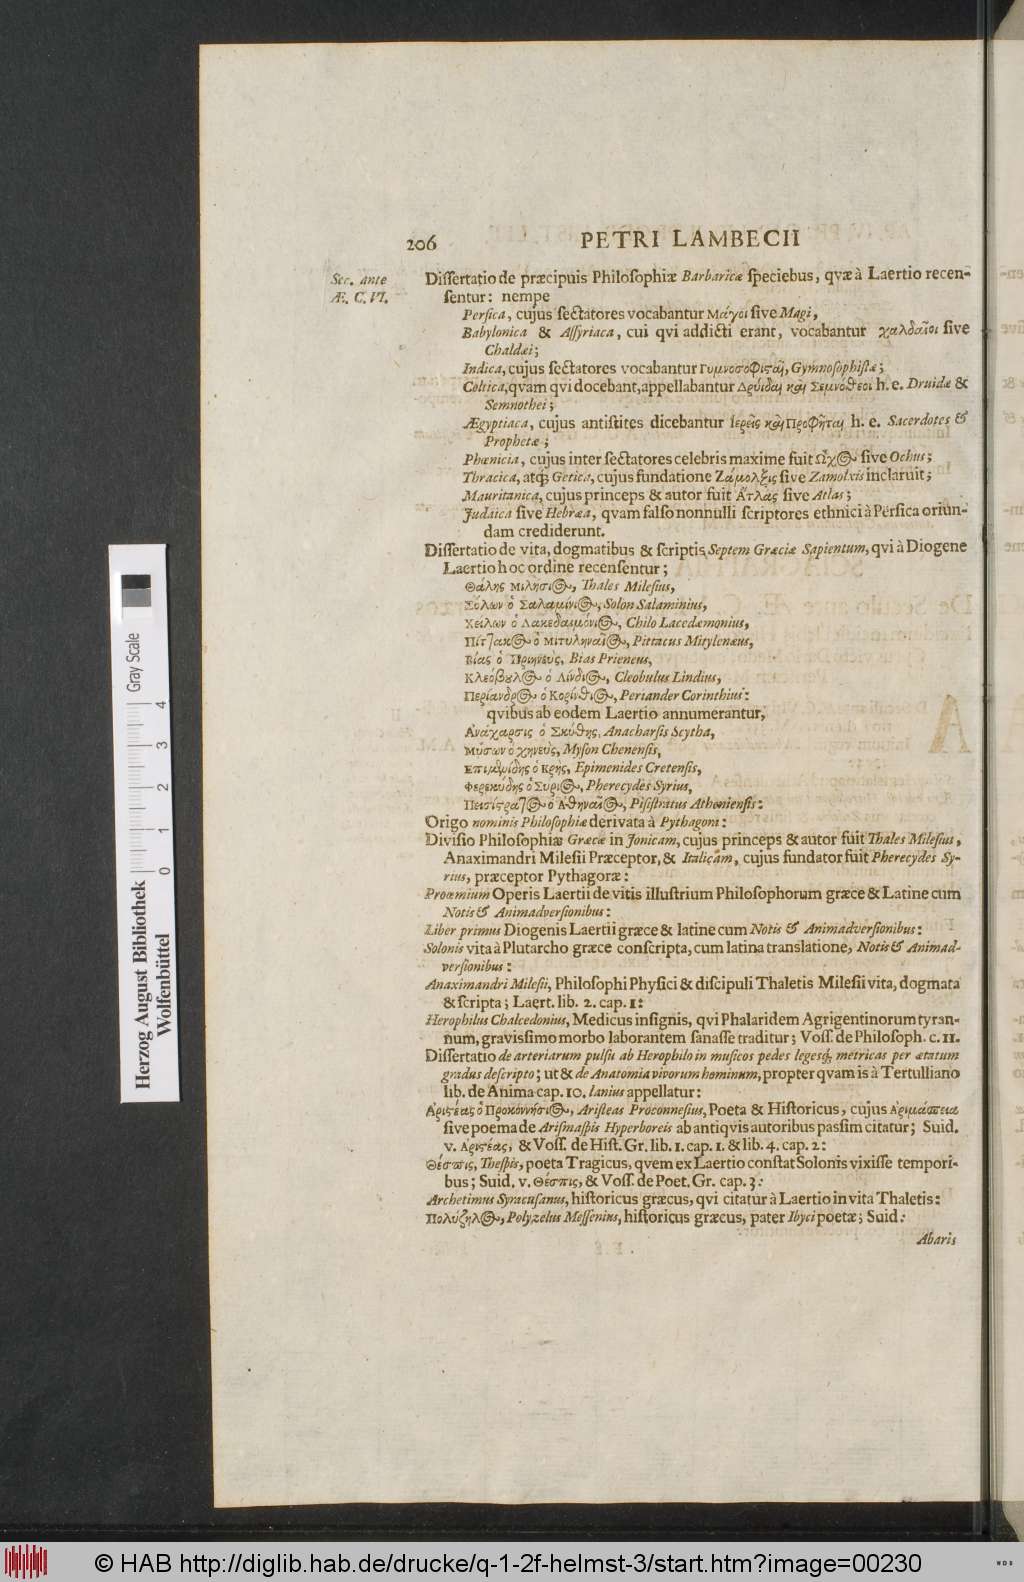 206 PETRI LAMBECII
Sec. ante
Æ. C. VI.
Dissertatio de præcipuis Philosophiæ Barbaricæ speciebus, qvæ à Laertio recen-
sentur: nempe
Persica, cujus sectatores vocabantur Μάγοι sive Magi,
Babylonica & Assyriaca, cui qvi addicti erant, vocabantur χαλδαῖοι sive
Chaldæi;
Indica, cujus sectatores vocabantur Γυμνοσοφισταὶ, Gymnosophistæ;
Celtica, qvam qvi docebant, appellabantur Δρυίδαι καὶ Σεμνόθεοι h. e. Druidæ &
Semnothei;
Ægyptiaca, cujus antistites dicebantur ἱερεῖς καὶ Προφῆται h. e. Sacerdotes &
Prophetæ;
Phœnicia, cujus inter sectatores celebris maxime fuit Ὦχος sive Ochus;
Thracica, atq; Getica, cujus fundatione Ζάμολξις sive Zamolxis inclaruit;
Mauritanica, cujus princeps & autor fuit Ἄτλας sive Atlas;
Judaica sive Hebræa, qvam falso nonnulli scriptores ethnici à Persica oriun-
dam crediderunt.
Dissertatio de vita, dogmatibus & scriptis Septem Græciæ Sapientum, qvi à Diogene
Laertio hoc ordine recensentur;
Θάλης Μιλήσιος, Thales Milesius,
Σόλων ὁ Σαλαμίνιος, Solon Salaminius,
Χείλων ὁ Λακεδαιμόνιος, Chilo Lacedæmonius,
Πίττακος ὁ Μιτυληναῖος, Pittacus Mitylenæus,
Βίας ὁ Πριηνεὺς, Bias Prieneus,
Κλεόβουλος ὁ Λίνδιος, Cleobulus Lindius,
Περίανδρος ὁ Κορίνθιος, Periander Corinthius:
qvibus ab eodem Laertio annumerantur,
Ἀνάχαρσις ὁ Σκύθης, Anacharsis Scytha,
Μύσων ὁ χηνεὺς, Myson Chenensis,
Επιμενίδης ὁ Κρὴς, Epimenides Cretensis,
Φερεκύδης ὁ Σύριος, Pherecydes Syrius,
Πεισίστρατος ὁ Ἀθηναῖος, Pisistratus Atheniensis:
Origo nominis Philosophiæ derivata à Pythagora:
Divisio Philosophiæ Græcæ in Jonicam, cujus princeps & autor fuit Thales Milesius,
Anaximandri Milesii Præceptor, & Italicam, cujus fundator fuit Pherecydes Sy-
rius, præceptor Pythagoræ:
Proœmium Operis Laertii de vitis illustrium Philosophorum græce & Latine cum
Notis & Animadversionibus:
Liber primus Diogenis Laertii græce & latine cum Notis & Animadversionibus:
Solonis vita à Plutarcho græce conscripta, cum latina translatione, Notis & Animad-
versionibus:
Anaximandri Milesii, Philosophi Physici & discipuli Thaletis Milesii vita, dogmata
& scripta; Laert. lib. 2. cap. 1:
Herophilus Chalcedonius, Medicus insignis, qvi Phalaridem Agrigentinorum tyran-
num, gravissimo morbo laborantem sanasse traditur; Voss. de Philosoph. c. 11.
Dissertatio de arteriarum pulsu ab Herophilo in musicos pedes legesq; metricas per ætatum
gradus descripto; ut & de Anatomia vivorum hominum, propter qvam is à Tertulliano
lib. de Anima cap. 10. lanius appellatur:
Αριστέας ὁ Προκοννήσιος, Aristeas Proconnesius, Poeta & Historicus, cujus Αριμάσπεια
sive poema de Arismaspis Hyperboreis ab antiqvis autoribus passim citatur; Suid.
v. Αριστέας, & Voss. de Hist. Gr. lib. 1. cap. 1. & lib. 4. cap. 2:
Θέσπις, Thespis, poeta Tragicus, qvem ex Laertio constat Solonis vixisse tempori-
bus; Suid. v. Θέσπις, & Voss. de Poet. Gr. cap. 3:
Archetimus Syracusanus, historicus græcus, qvi citatur à Laertio in vita Thaletis:
Πολύζηλος, Polyzelus Messenius, historicus græcus, pater Ibyci poetæ; Suid:
Abaris
Herzog August Bibliothek
Wolfenbüttel
Gray Scale
0 1 2 3 4
© HAB http://diglib.hab.de/drucke/q-1-2f-helmst-3/start.htm?image=00230